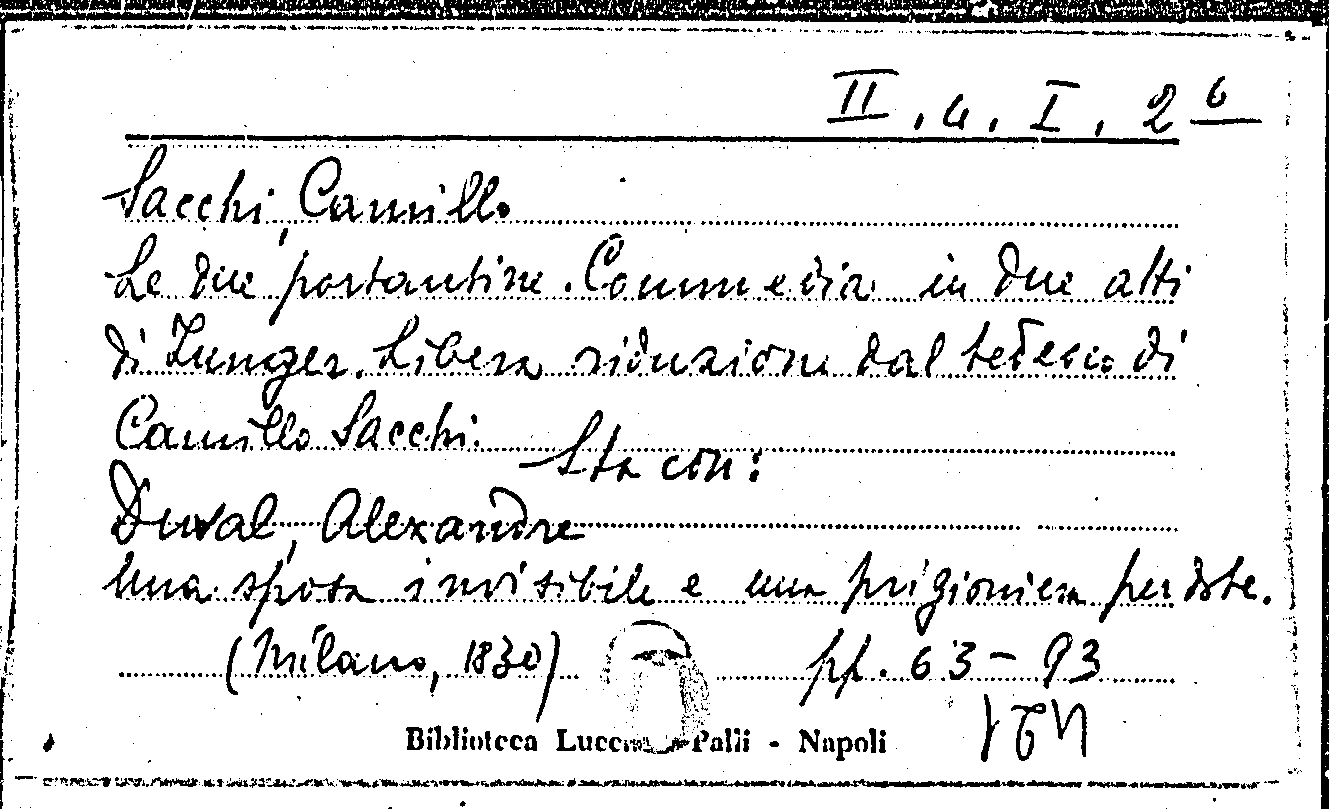 II. a. I. 2 6
Sacchi, Camillo
Le due portantine. Commedia in due atti
di Junger. Libera riduzione dal tedesco di
Camillo Sacchi.
Sta con:
Duval, Alexandre
Una sposa invisibile e una prigioniera per dote.
(Milano, 1830) pp. 63-93
Biblioteca Lucchesi-Palli - Napoli